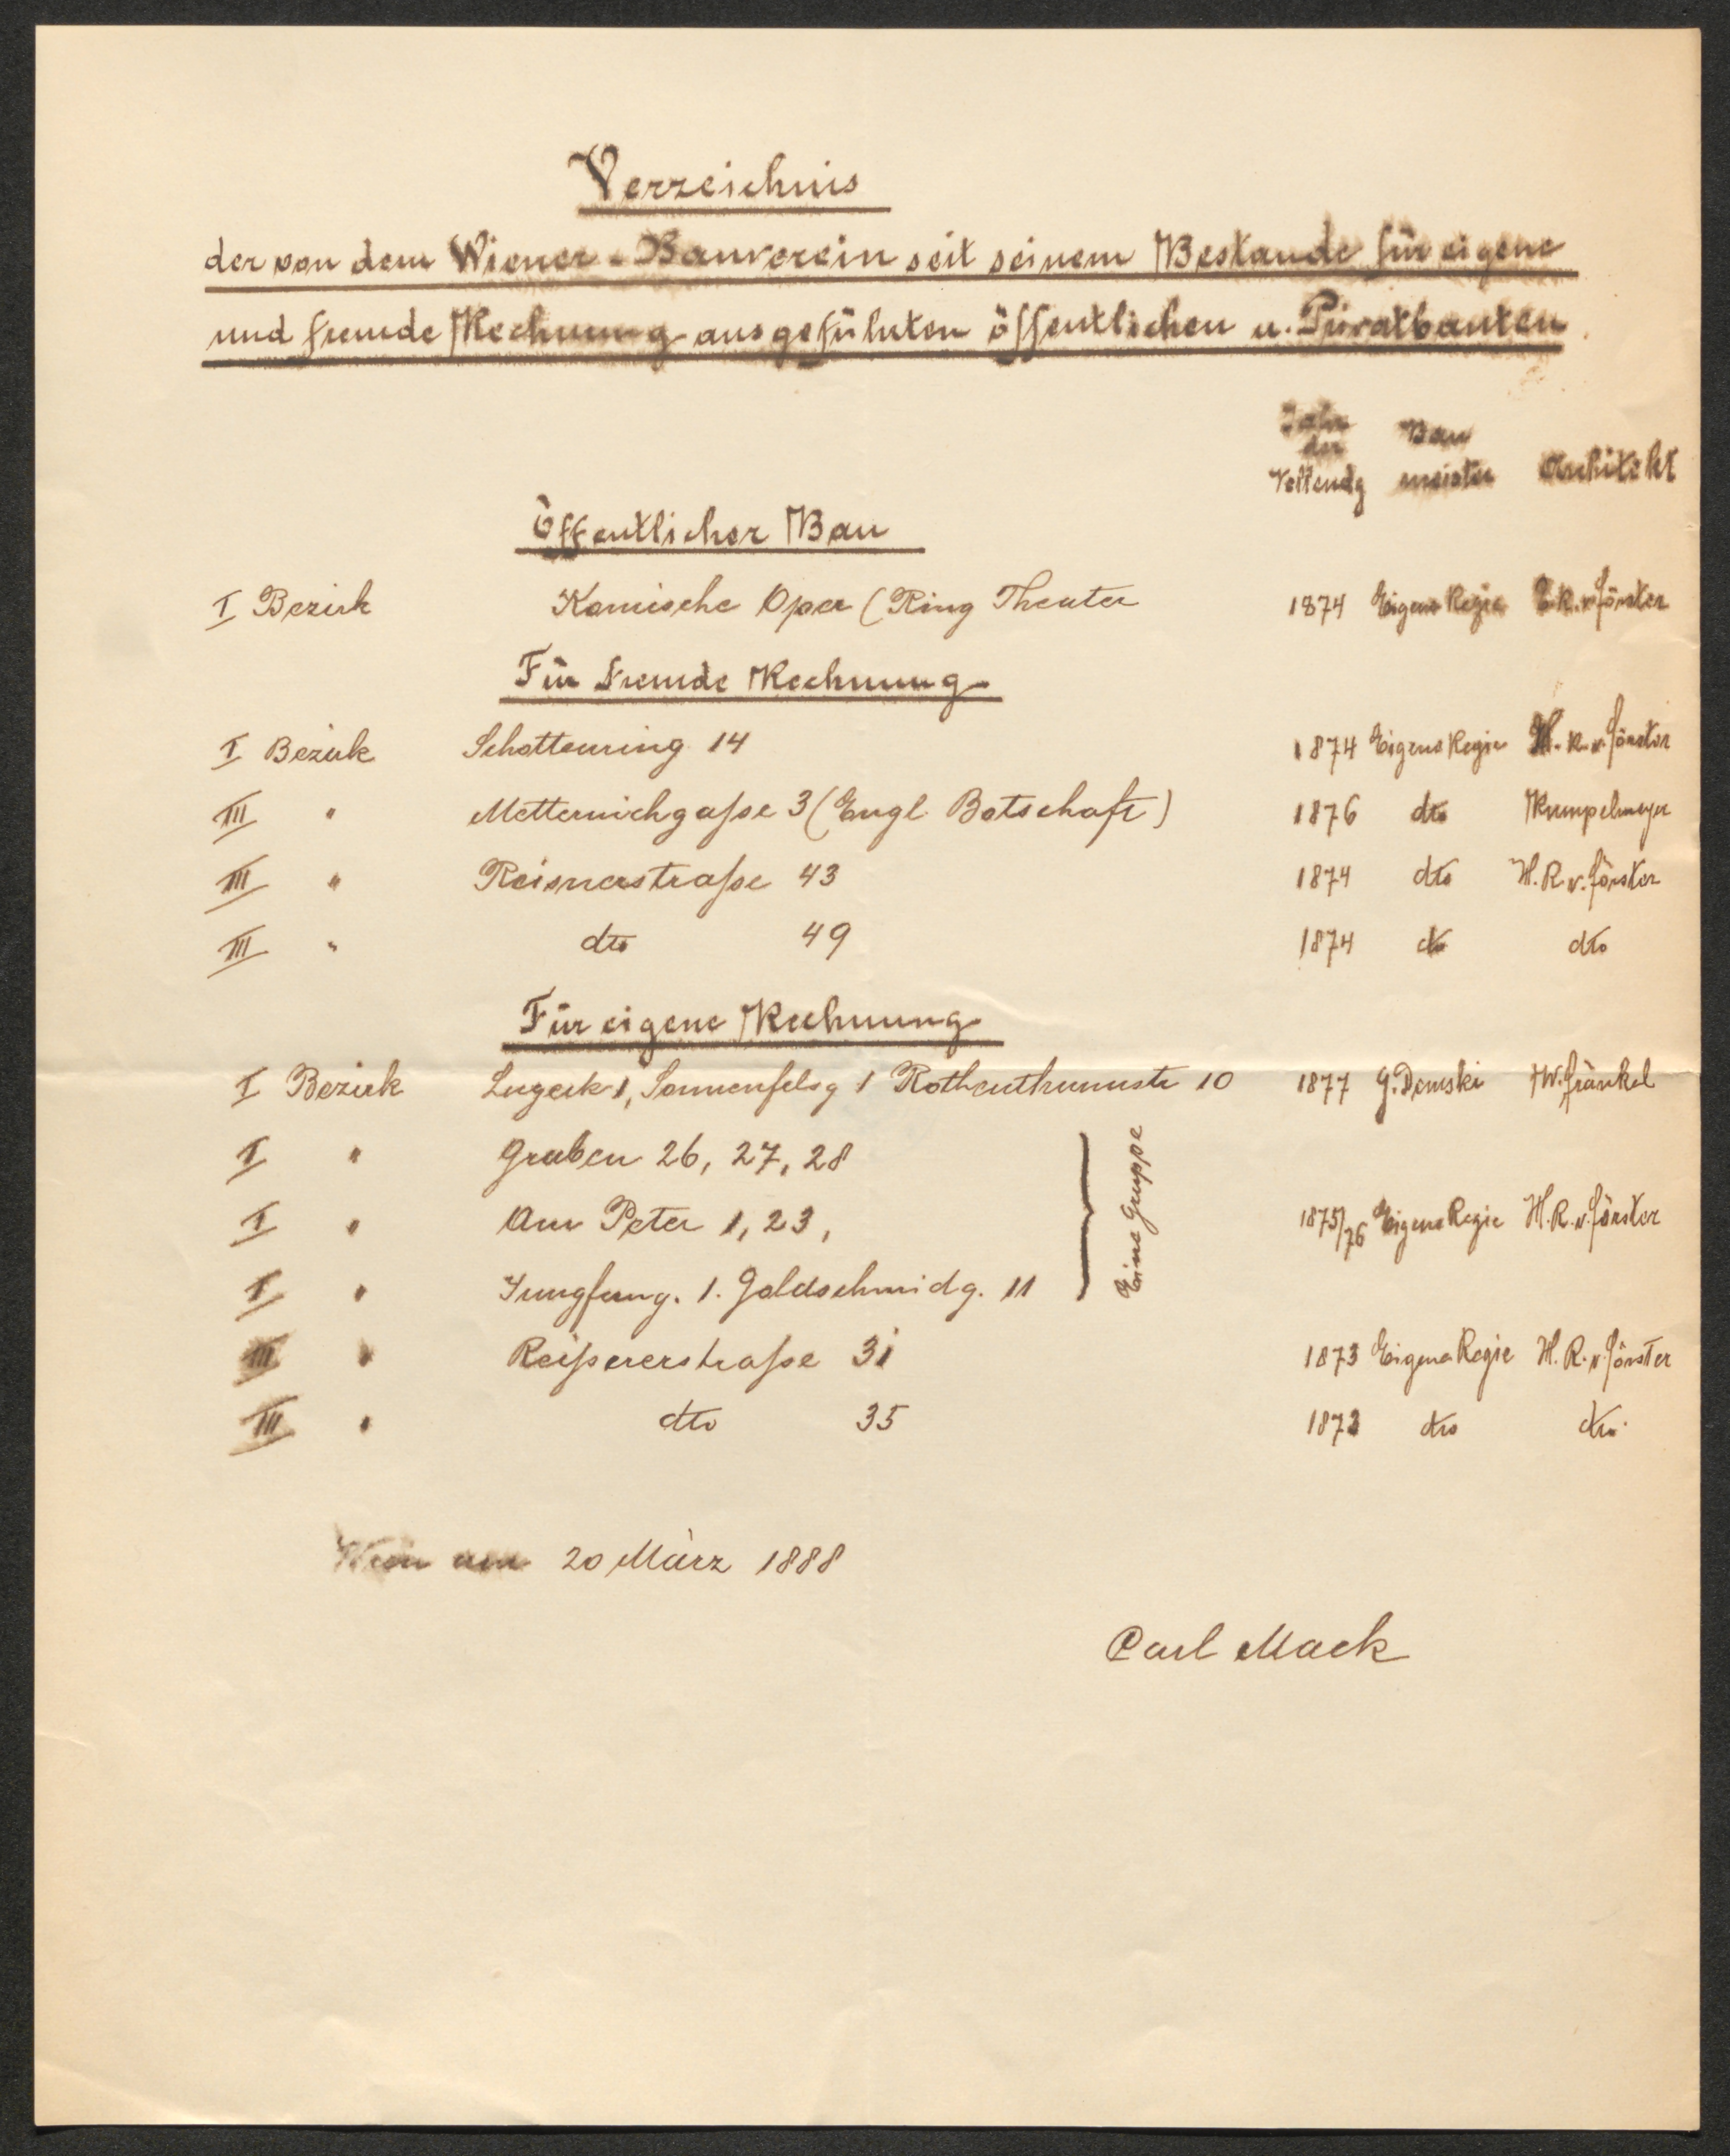 Verzeichnis
der von dem Wiener-Bauverein seit seinem Bestande für eigene
und fremde Rechnung ausgeführten öffentlichen u. Privatbauten
Jahr der Vollendg Bau meister Architekt
Öffentlicher Bau
I Bezirk Komische Oper (Ring Theater 1874 Eigene Regie E. R. v. Förster
Für fremde Rechnung
I Bezirk Schottenring 14 1874 Eigene Regie H. R. v. Förster
III " Metternichgaße 3 (Engl. Botschaft) 1876 dto Rumpelmeyer
III " Reisnerstraße 43 1874 dto H. R. v. Förster
III " dto 49 1874 dto dto
Für eigene Rechnung
I Bezirk Lugeck 1, Sonnenfelsg 1 Rothenthurmstr 10 1877 G. Demski W. Fränkel
I " Graben 26, 27, 28
I " Am Peter 1, 23, Eine Gruppe 1875/76 Eigene Regie H. R. v. Förster
I " Jungferng. 1. Goldschmidg. 11
III " Reißererstraße 31 1873 Eigene Regie H. R. v. Förster
III " dto 35 1873 dto dto
Wien am 20 März 1888
Carl Mack